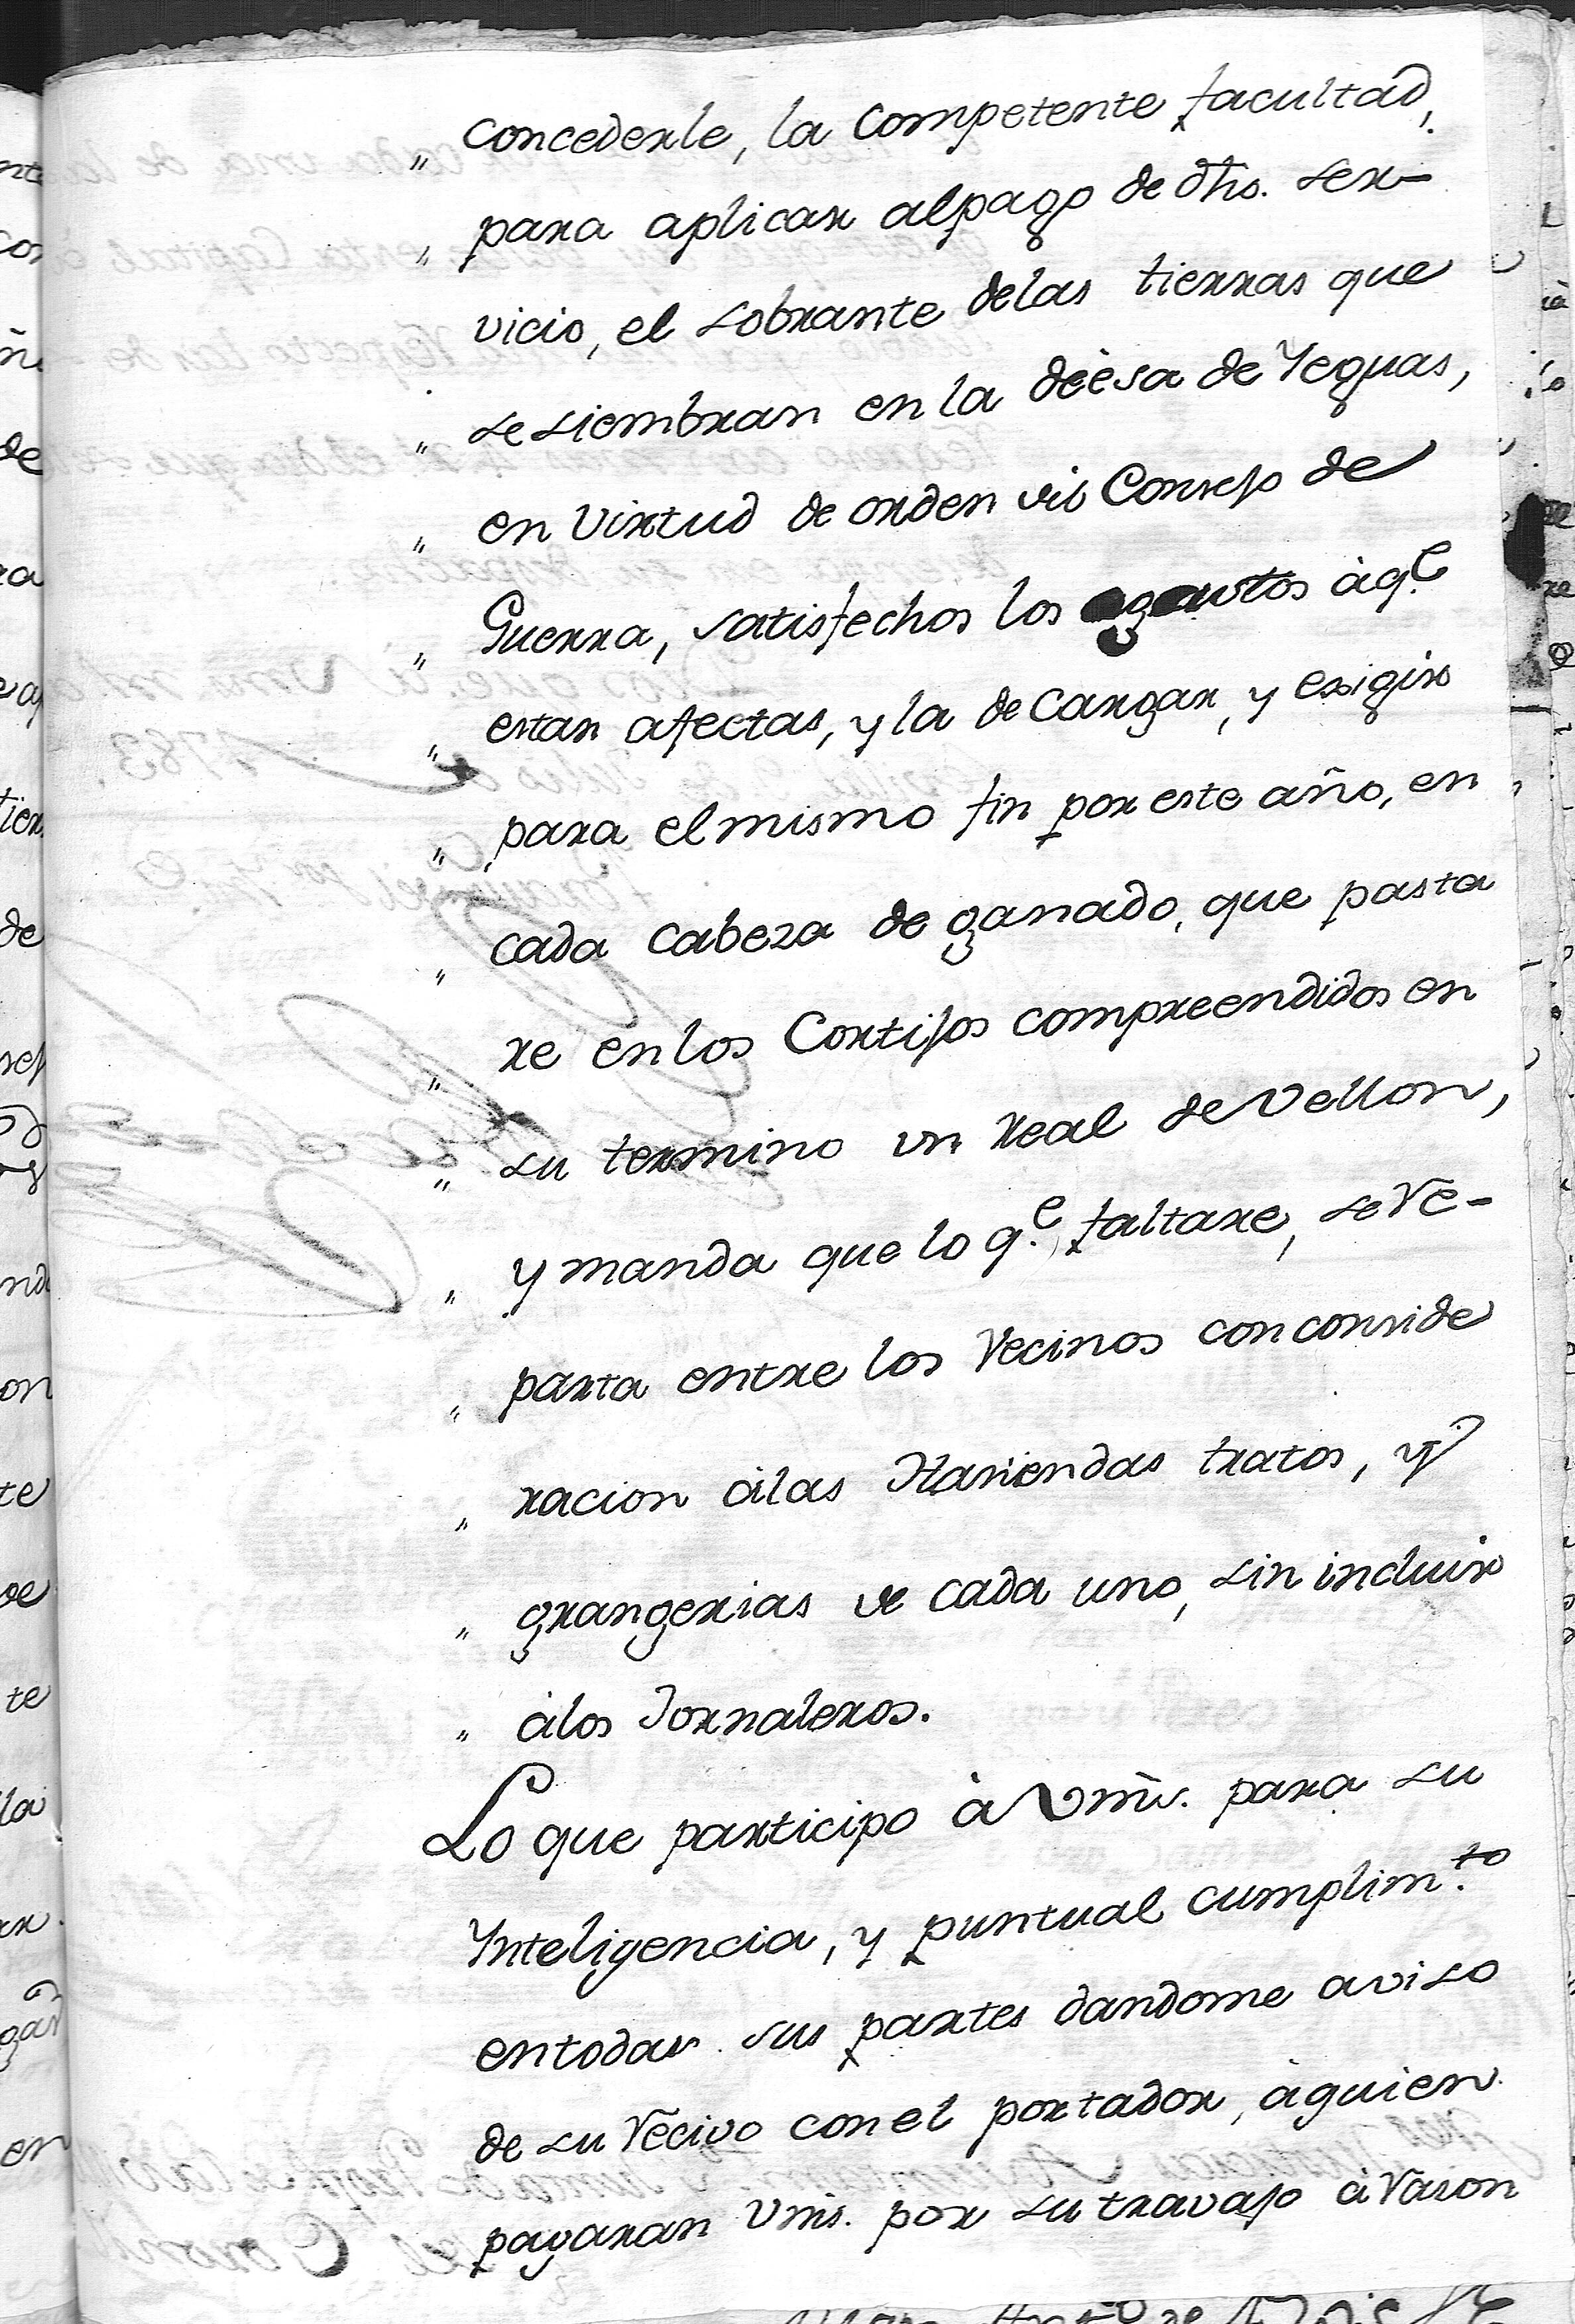 „ concederle, la competente facultad,
„ para aplicar al pago de dhs. ser-
vicio, el sobrante de las tierras que
„ se siembran en la dèesa de Yeguas,
„ en virtud de orden del Consejo de
„ Guerra, satisfechos los gastos à q.e
„ estan afectas, y la de cargar, y exigir
„ para el mismo fin por este año, en
„ cada cabeza de ganado, que pasta
„ re en los Cortijos compreendidos en
„ su termino un real de vellon,
„ y manda que lo q.e faltare, se re-
„ parta entre los vecinos con conside
„ racion à las Haciendas tratos, y
„ grangerias de cada uno, sin incluir
„ à los Jornaleros.
Lo que participo à Vms. para su
Inteligencia, y puntual cumplim.to
en todas sus partes dandome aviso
de su recivo con el portador, à quien
pagaran Vms. por su travajo à rason